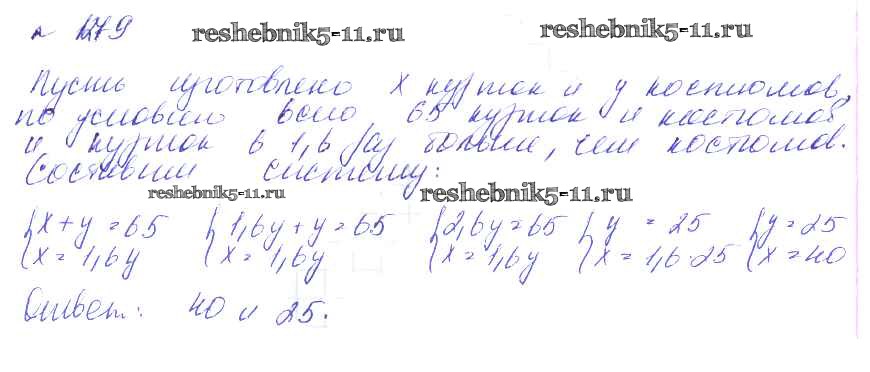 № 1279 reshebnik5-11.ru reshebnik5-11.ru
Пусть изготовлено x курток и y костюмов,
по условию всего 65 курток и костюмов
и курток в 1,6 раз больше, чем костюмов.
Составим систему:
reshebnik5-11.ru reshebnik5-11.ru
{x + y = 65 {1,6y + y = 65 {2,6y = 65 {y = 25 {y = 25
x = 1,6y x = 1,6y x = 1,6y x = 1,6·25 x = 40
Ответ: 40 и 25.